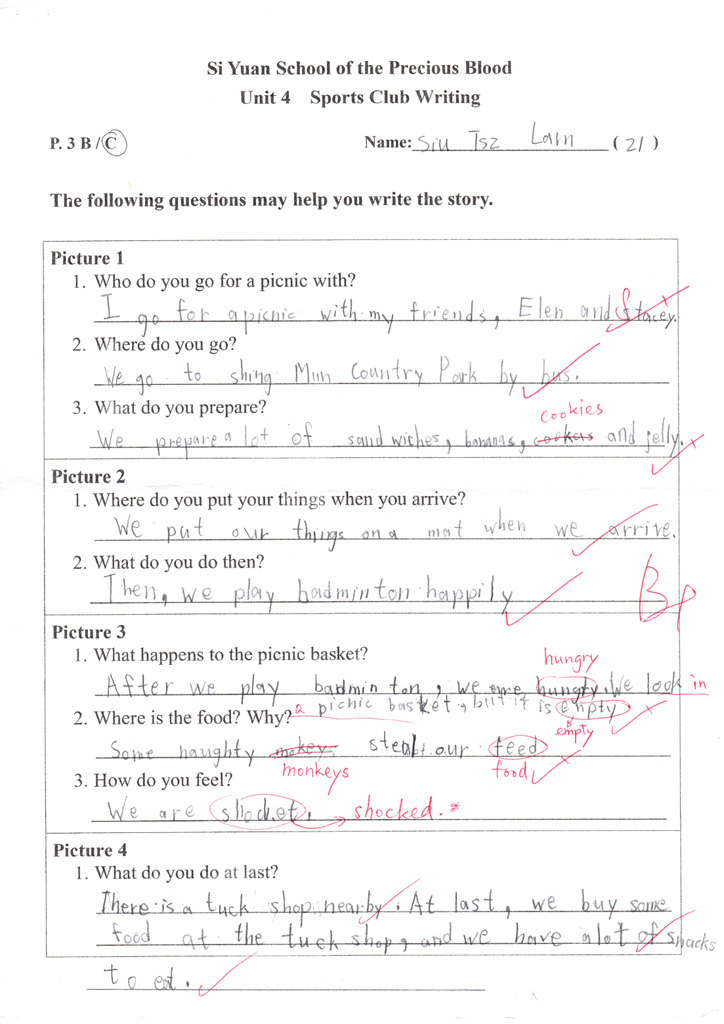 Si Yuan School of the Precious Blood
Unit 4 Sports Club Writing
P. 3 B / C Name: Siu Tsz Lam ( 21 )
The following questions may help you write the story.
Picture 1
1. Who do you go for a picnic with?
I go for a picnic with my friends, Elen and Stacey.
2. Where do you go?
We go to shing Mun Country Park by bus.
3. What do you prepare?
cookies
We prepare a lot of sandwiches, bananas, and jelly.
Picture 2
1. Where do you put your things when you arrive?
We put our things on a mat when we arrive.
2. What do you do then?
Then, we play badminton happily
Picture 3
1. What happens to the picnic basket?
hungry
After we play badminton, we are hungty. We look in
2. Where is the food? Why?
a picnic basket, but it is empty
empty
Some naughty steal our feed
monkeys food
3. How do you feel?
We are shocket. shocked.
Picture 4
1. What do you do at last?
There is a tuck shop nearby. At last, we buy some
food at the tuck shop, and we have a lot of snacks
to eat.